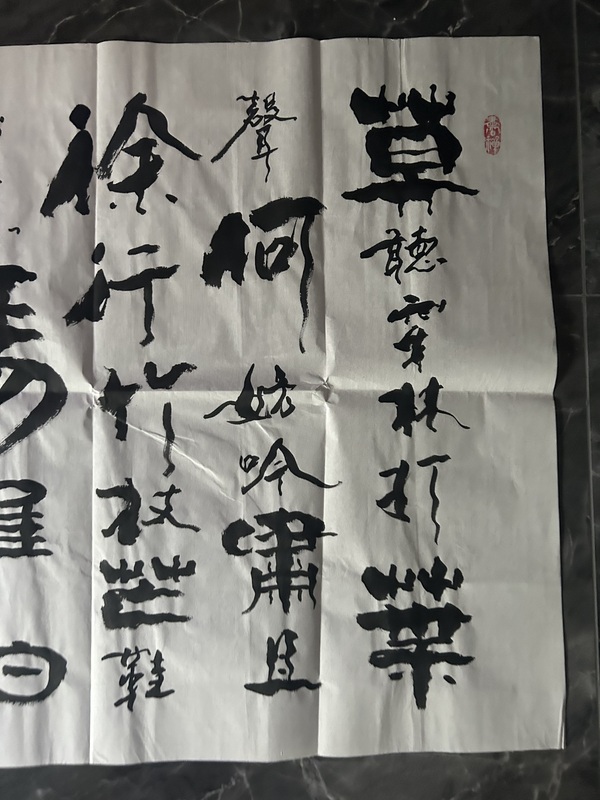 莫聽穿林打葉
聲何妨吟嘯且
徐行竹杖芒鞋